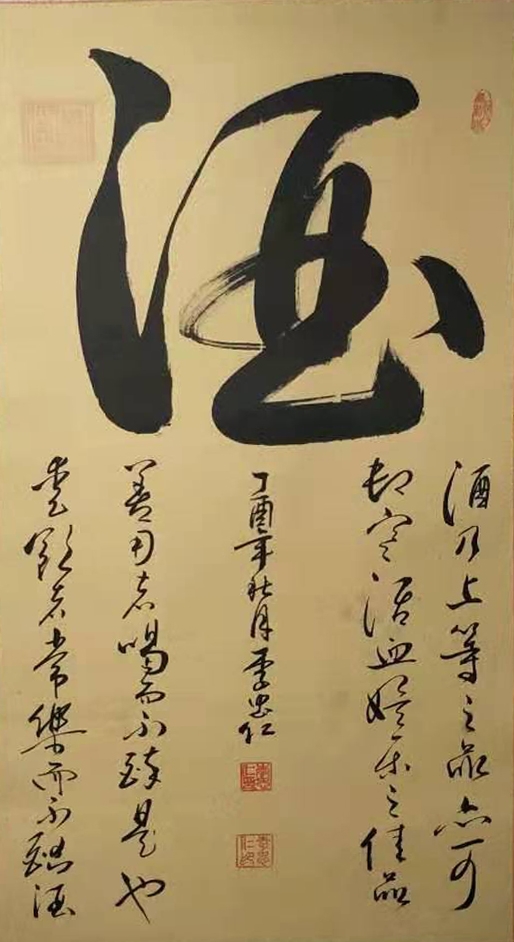 酒
酒乃上等之品亦可
却寒活血娱乐之佳品
丁酉年秋月李忠仁
善用者喝而不醉是也
者常樂而不酗酒